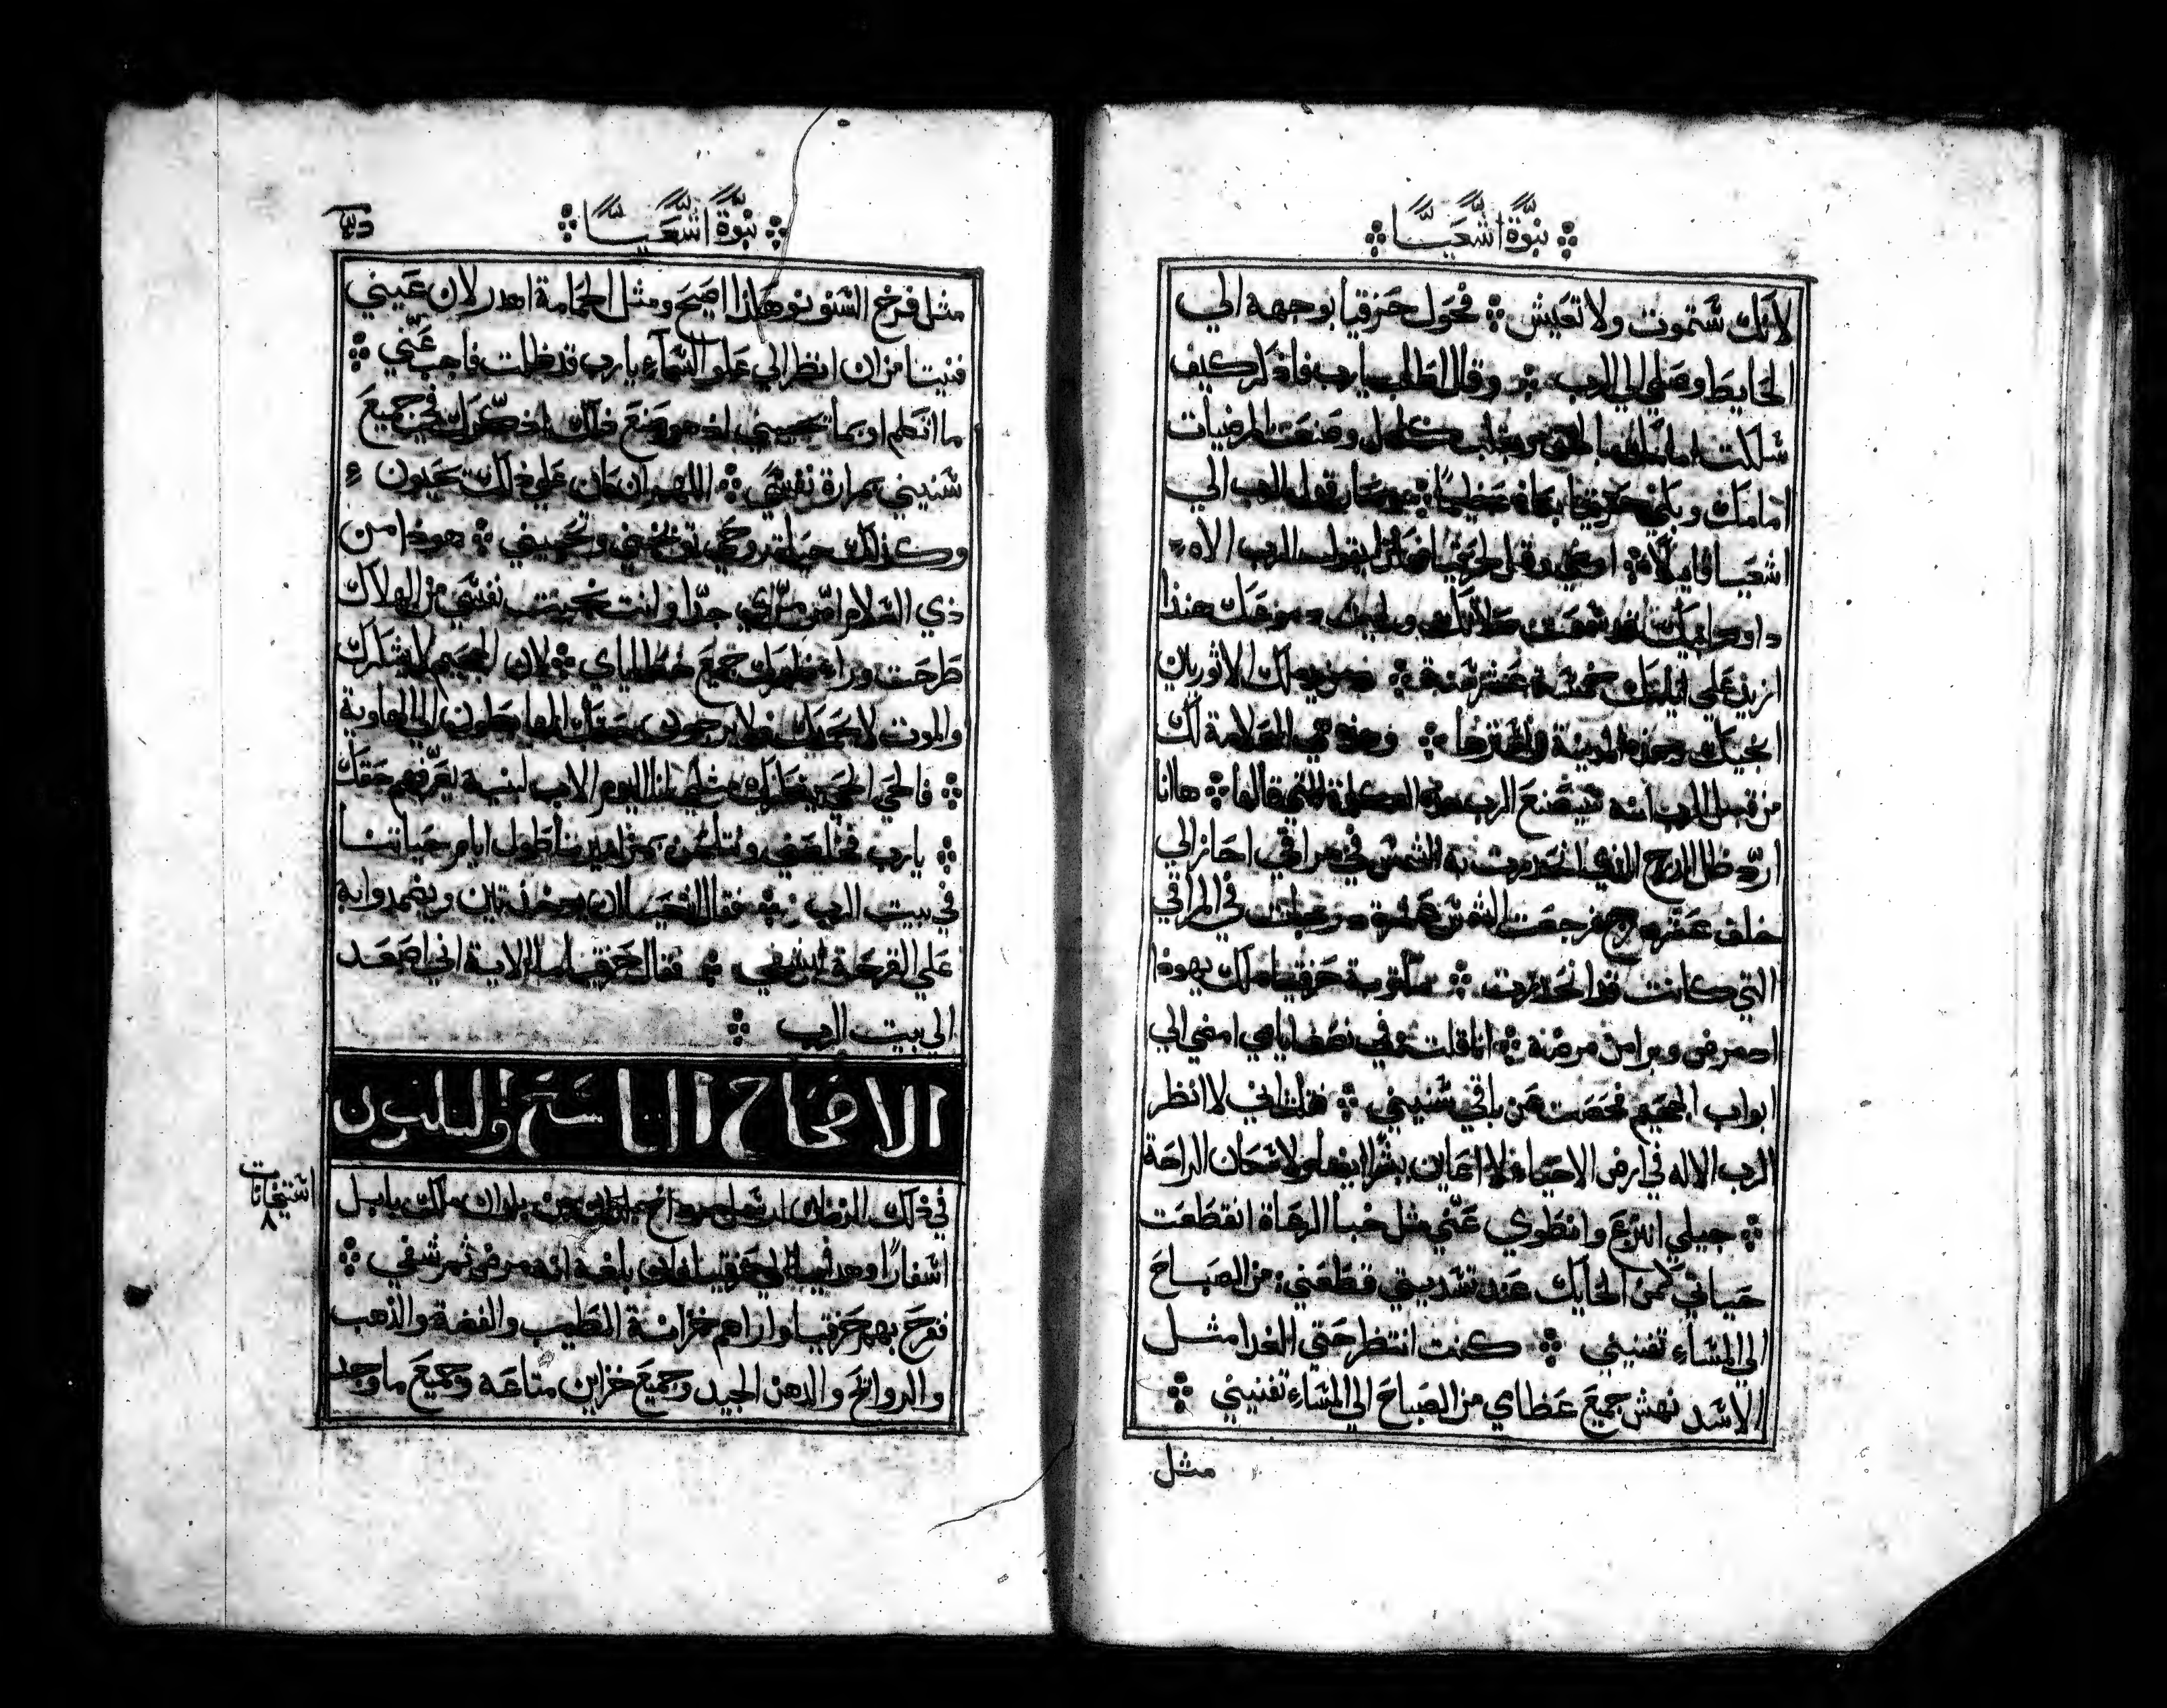 نبوة اشعيا
لانك ستموت ولا تعيش فحول حزقيا بوجهه الي
الحايط وصلي الي الرب وقال اطلب يارب فاذكر كيف
سلكت امامك بالحق وبقلب كامل وصنعت المرضيات
امامك وبكي حزقيا بكاء عظيما فصار قول الرب الي
اشعيا قايلا امضي وقل لحزقيا هكذا يقول الرب الاه
داود ابيك قد سمعت صلاتك ورايت دموعك هنذا
ازيد علي ايامك خمسة عشر سنة ومن يد ملك الاثوريان
انجيك وهذه المدينة واسترها وهذه هي العلامة لك
من قبل الرب انه سيصنع الرب هذه الكلمة التي قالها هاانا
ارد ظل الدرج الذي انحدرت به الشمس في مراقي احاز الي
خلف عشرة درج فرجعت الشمس عشرة درجات في المراقي
التي كانت قد انحدرت مكتوبة حزقيا ملك يهوذا
اذ مرض وبرا من مرضه انا قلت في نصف ايامي امضي الي
ابواب الجحيم فحصت عن باقي سنيني قلت اني لا انظر
الرب الاله في ارض الاحياء ولا اعاين بشرا ايضا ولا سكان الراحة
جيلي انتزع وانطوي عني مثل خبا الرعاة انقطعت
حياتي كمن الحايك عند تسديتي قطعني من الصباح
الي المساء تفنيني كنت انتظر حتي الغدا مثل
الاسد نهش جميع عظامي من الصباح الي المساء تفنيني
مثل
نبوة اشعيا
مثل فرخ السنونو هكذا اصيح ومثل الحمامة اهدر لان عيني
فنيتا من ان انظر الي علو السماء يارب قد ظلمت فاجب عني
ما اتكلم او بما تجيبني اذ هو صنع ذلك اذكر لك في جميع
سنيني بمرارة نفسي اللهم ان كان علي ذلك يحيون
وكذلك حياة روحي توبخني وتحييني هوذا من
ذي السلام امر مرارتي جدا وانت نجيت نفسي من الهلاك
طرحت وراء ظهرك جميع خطاياي لان الجحيم لا يشكرك
والموت لا يحمدك ولا يرجون حقك الهابطون الي الهاوية
فالحي الحي يشكرك مثلي انا اليوم الاب لبنيه يعرفهم حقك
يارب فخلصني ونتلمن بمزاميرنا طول ايام حياتنا
في بيت الرب فقال اشعيا ان يوخذ تين ويضمدوا به
علي القرحة فيشفي فقال حزقيا ما الاية اني اصعد
الي بيت الرب
الاصحاح التاسع والثلثون
استيخانات
٨
في ذلك الزمان ارسل مرواخ بلدان بن بلدان ملك بابل
اسفارا وهدايا الي حزقيا لما بلغه انه مرض ثم شفي
ففرح بهم حزقيا واراهم خزانة الطيب والفضة والذهب
والروايح والدهن الجيد وجميع خزاين متاعه وجميع ما وجد